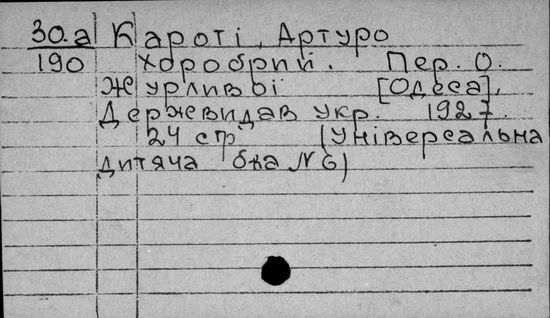 30.а Кароті, Артуро
190 Хоробрий. Пер. О.
Журливої [Одеса],
Держевидав укр. 1927.
24 стр (Універсальна
дитяча бка № 6)